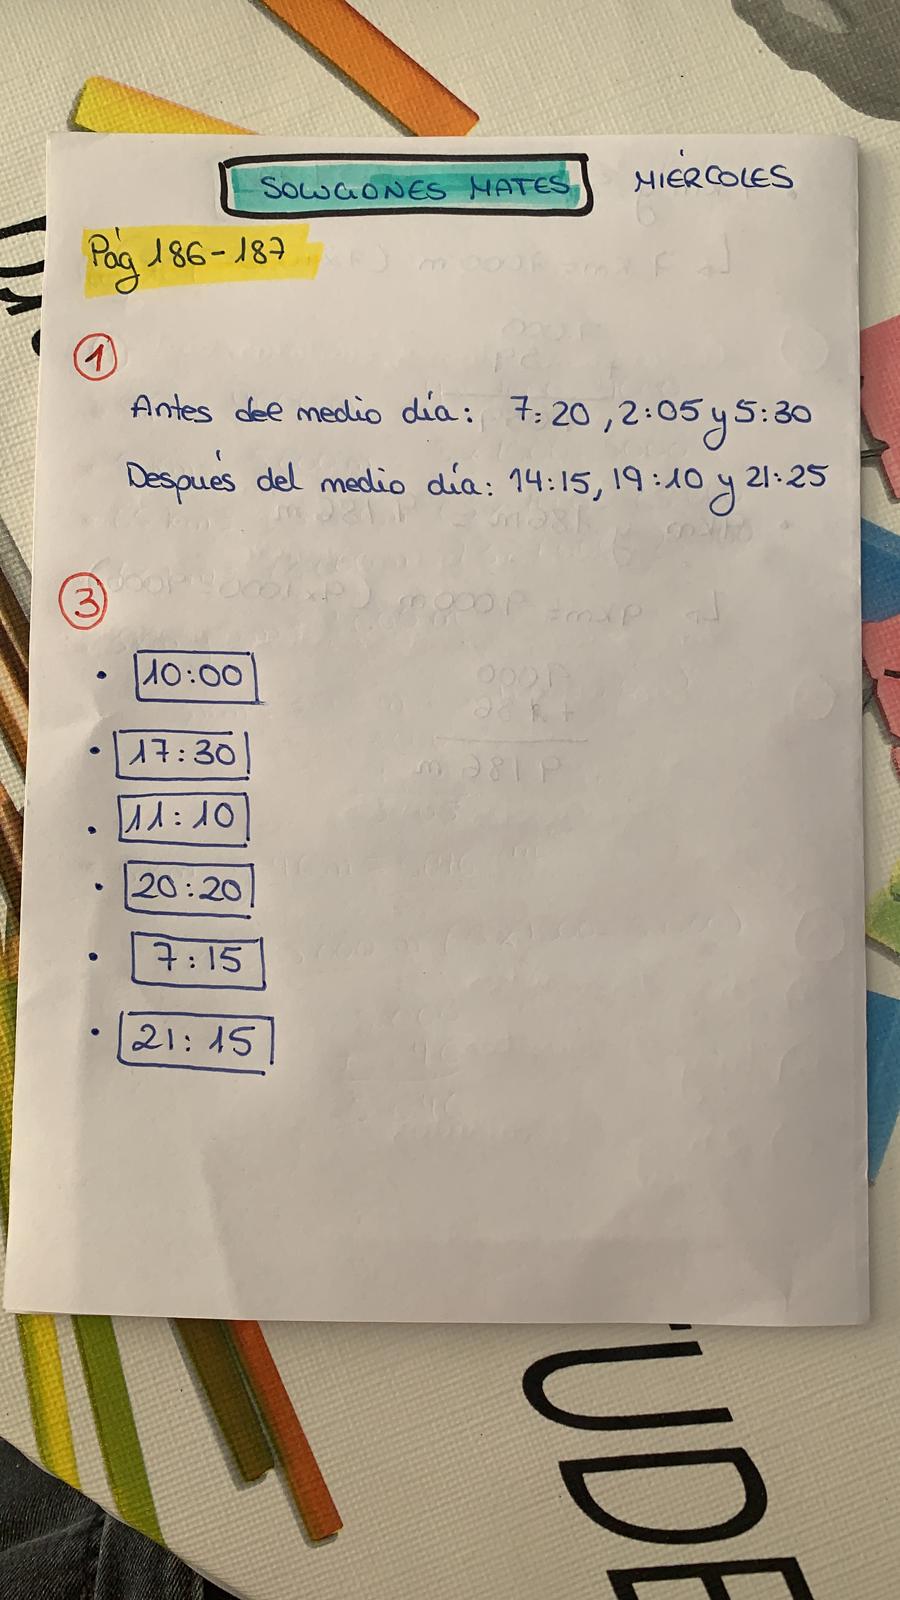 SOLUCIONES MATES MIÉRCOLES
Pág 186-187
1
Antes del medio día: 7:20, 2:05 y 5:30
Después del medio día: 14:15, 19:10 y 21:25
3
• 10:00
• 17:30
• 11:10
• 20:20
• 7:15
• 21:15
UDE